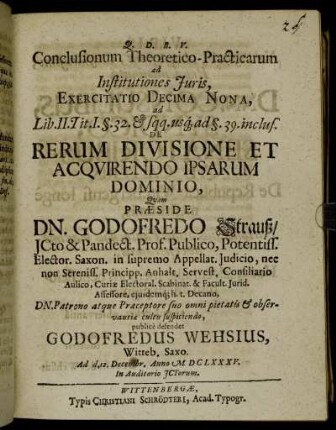 25
Q. D. B. V.
Conclusionum Theoretico-Practicarum
ad
Institutiones Juris,
EXERCITATIO DECIMA NONA,
ad
Lib. II. Tit. I. §. 32. & sqq. usq; ad §. 39. inclus.
DE
RERUM DIVISIONE ET
ACQVIRENDO IPSARUM
DOMINIO,
Quam
PRÆSIDE
DN. GODOFREDO Strauß/
JCto & Pandect. Prof. Publico, Potentiss.
Elector. Saxon. in supremo Appellat. Judicio, nec
non Sereniss. Principp. Anhalt. Servest, Consiliario
Aulico, Curiæ Electoral. Scabinat. & Facult. Jurid.
Assessore, ejusdemq; h. t. Decano,
DN. Patrono atque Præceptore suo omni pietatis & obser-
vantiæ cultu suspiciendo,
publicè defendet
GODOFREDUS WEHSIUS,
Witteb. Saxo.
Ad d. Decembr. Anno M DCLXXXV.
In Auditorio JCTorum.
WITTENBERGÆ,
Typis CHRISTIANI SCHRÖDTERI, Acad. Typogr.